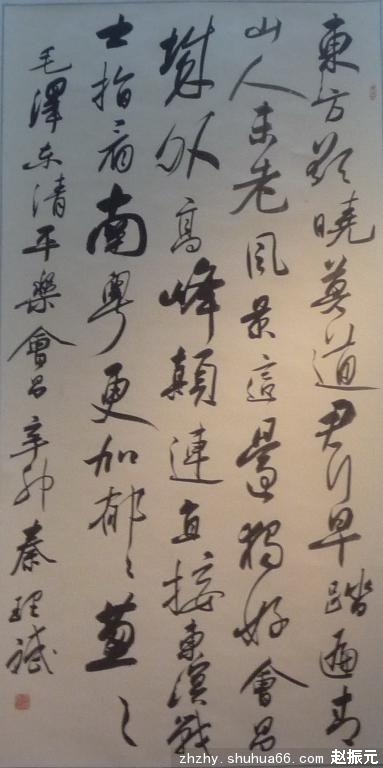 東方欲曉莫道君行早踏遍青
山人未老風景這邊獨好會昌
城外高峰顛連直接東溟戰
士指看南粵更加郁〻蔥〻
毛澤东清平樂會昌辛卯秦理斌
zhzhy.shuhua66.com 赵振元